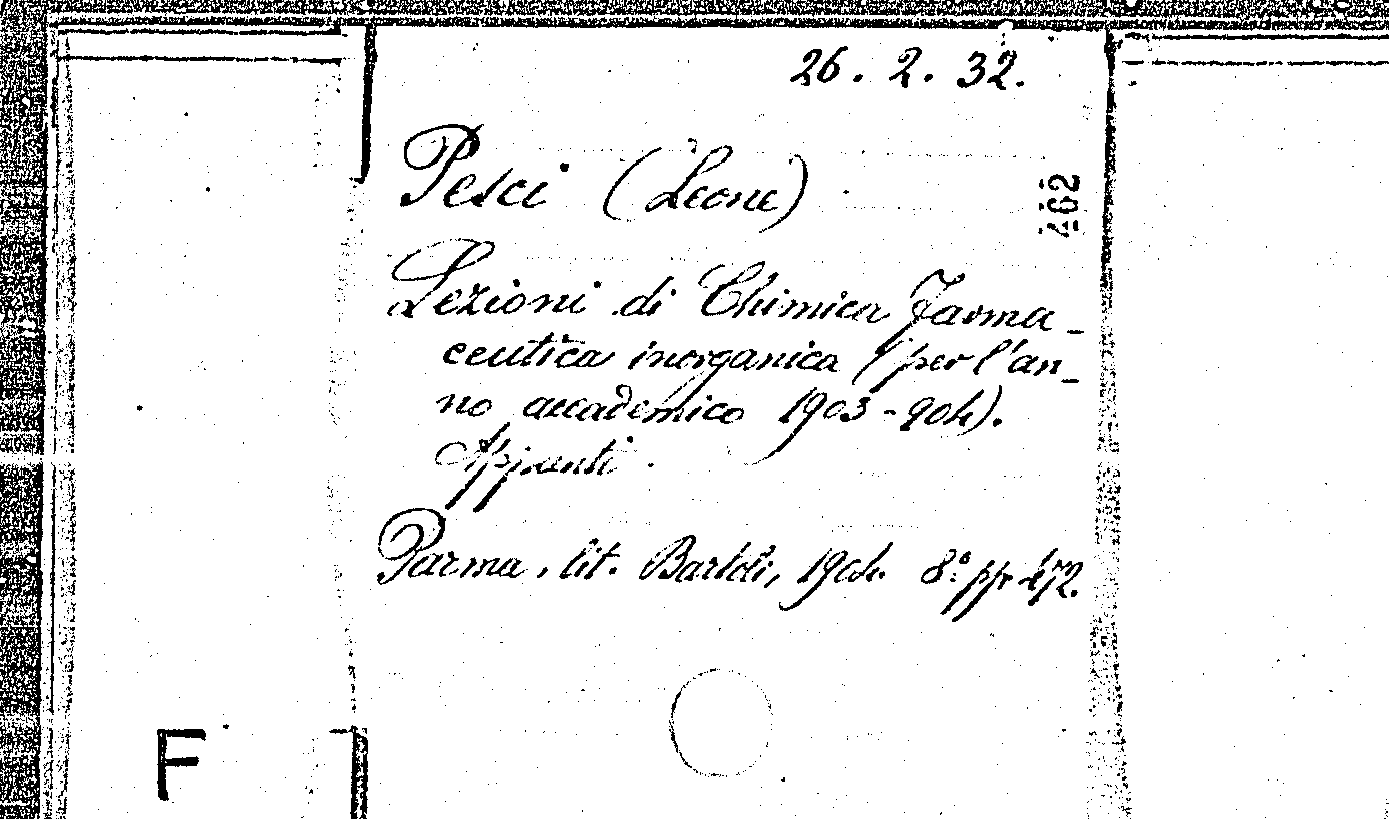 26 . 2 . 32.
Pesci (Leone)
262
Lezioni di Chimica Farma-
ceutica inorganica (per l'an-
no accademico 1903-904).
Appunti.
Parma, lit. Bartoli, 1904. 8.° pp. 472.
F